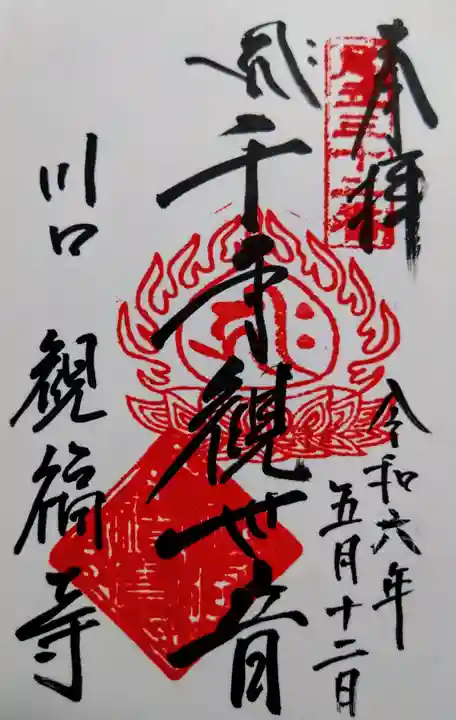 奉拝
令和六年
五月十二日
千手観世音
川口 観福寺